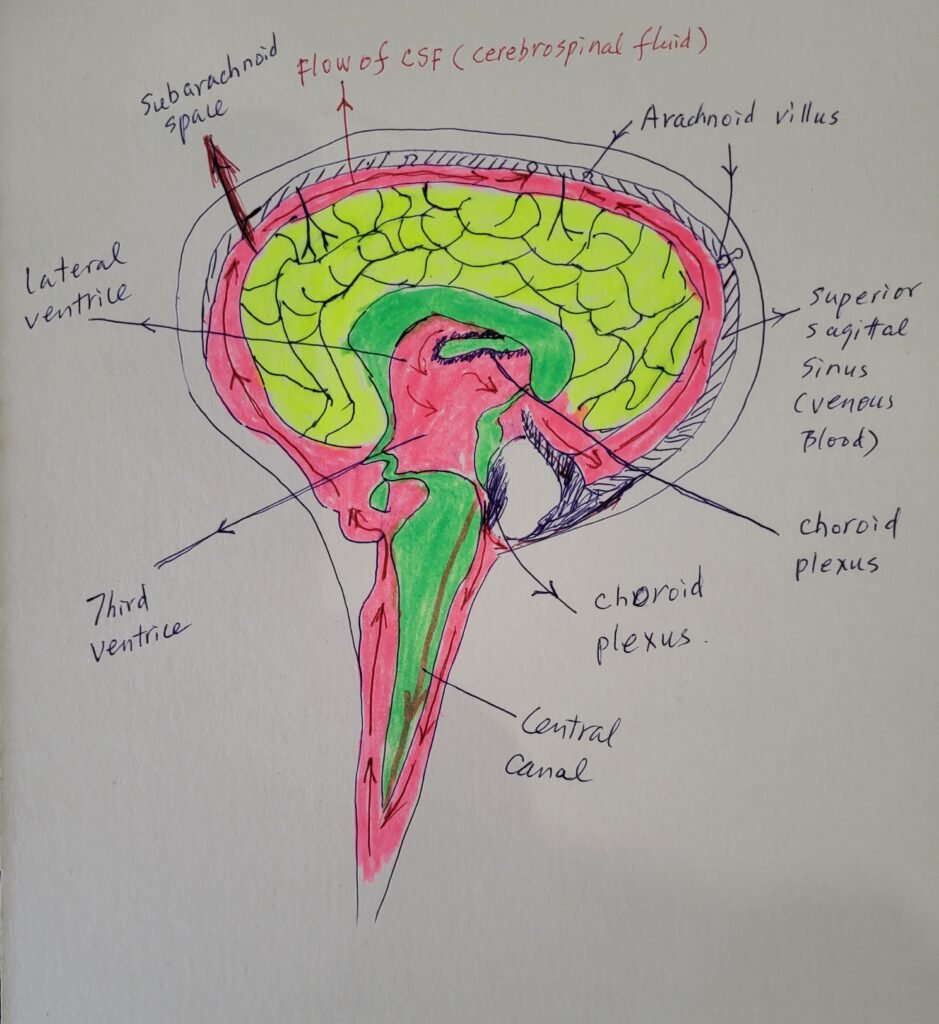 Subarachnoid
space
Flow of CSF (cerebrospinal fluid)
Arachnoid villus
Lateral
ventrice
Superior
sagittal
sinus
(venous
Blood)
choroid
plexus
Third
ventrice
choroid
plexus.
Central
canal